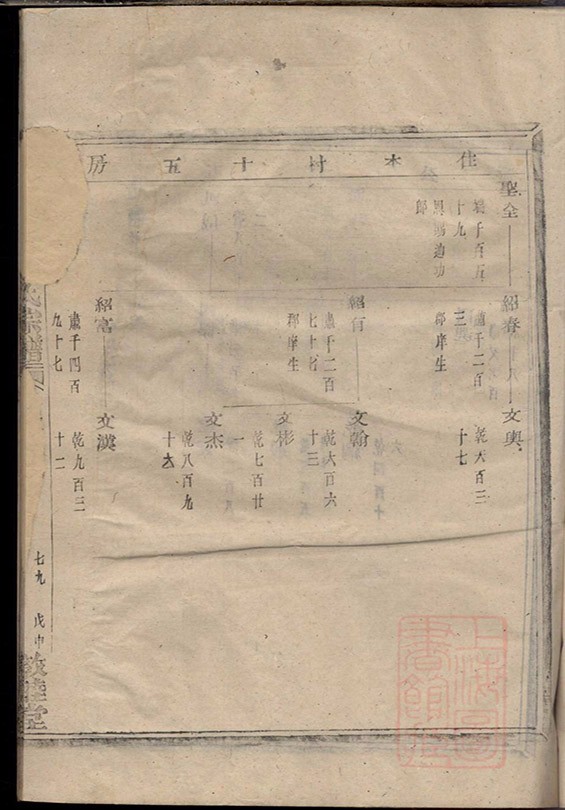 住木村十五房
聖全
十九
郎
紹春
肅千二百
三
郡庠生
文輿
乾六百三
十七
紹有
肅千二百
七十七
郡庠生
文翰
乾六百六
十三
文彬
乾七百廿
一
文杰
乾八百九
十六
紹富
肅千四百
九十七
文漢
乾九百三
十二
宗譜
七九
戊申
敦睦堂